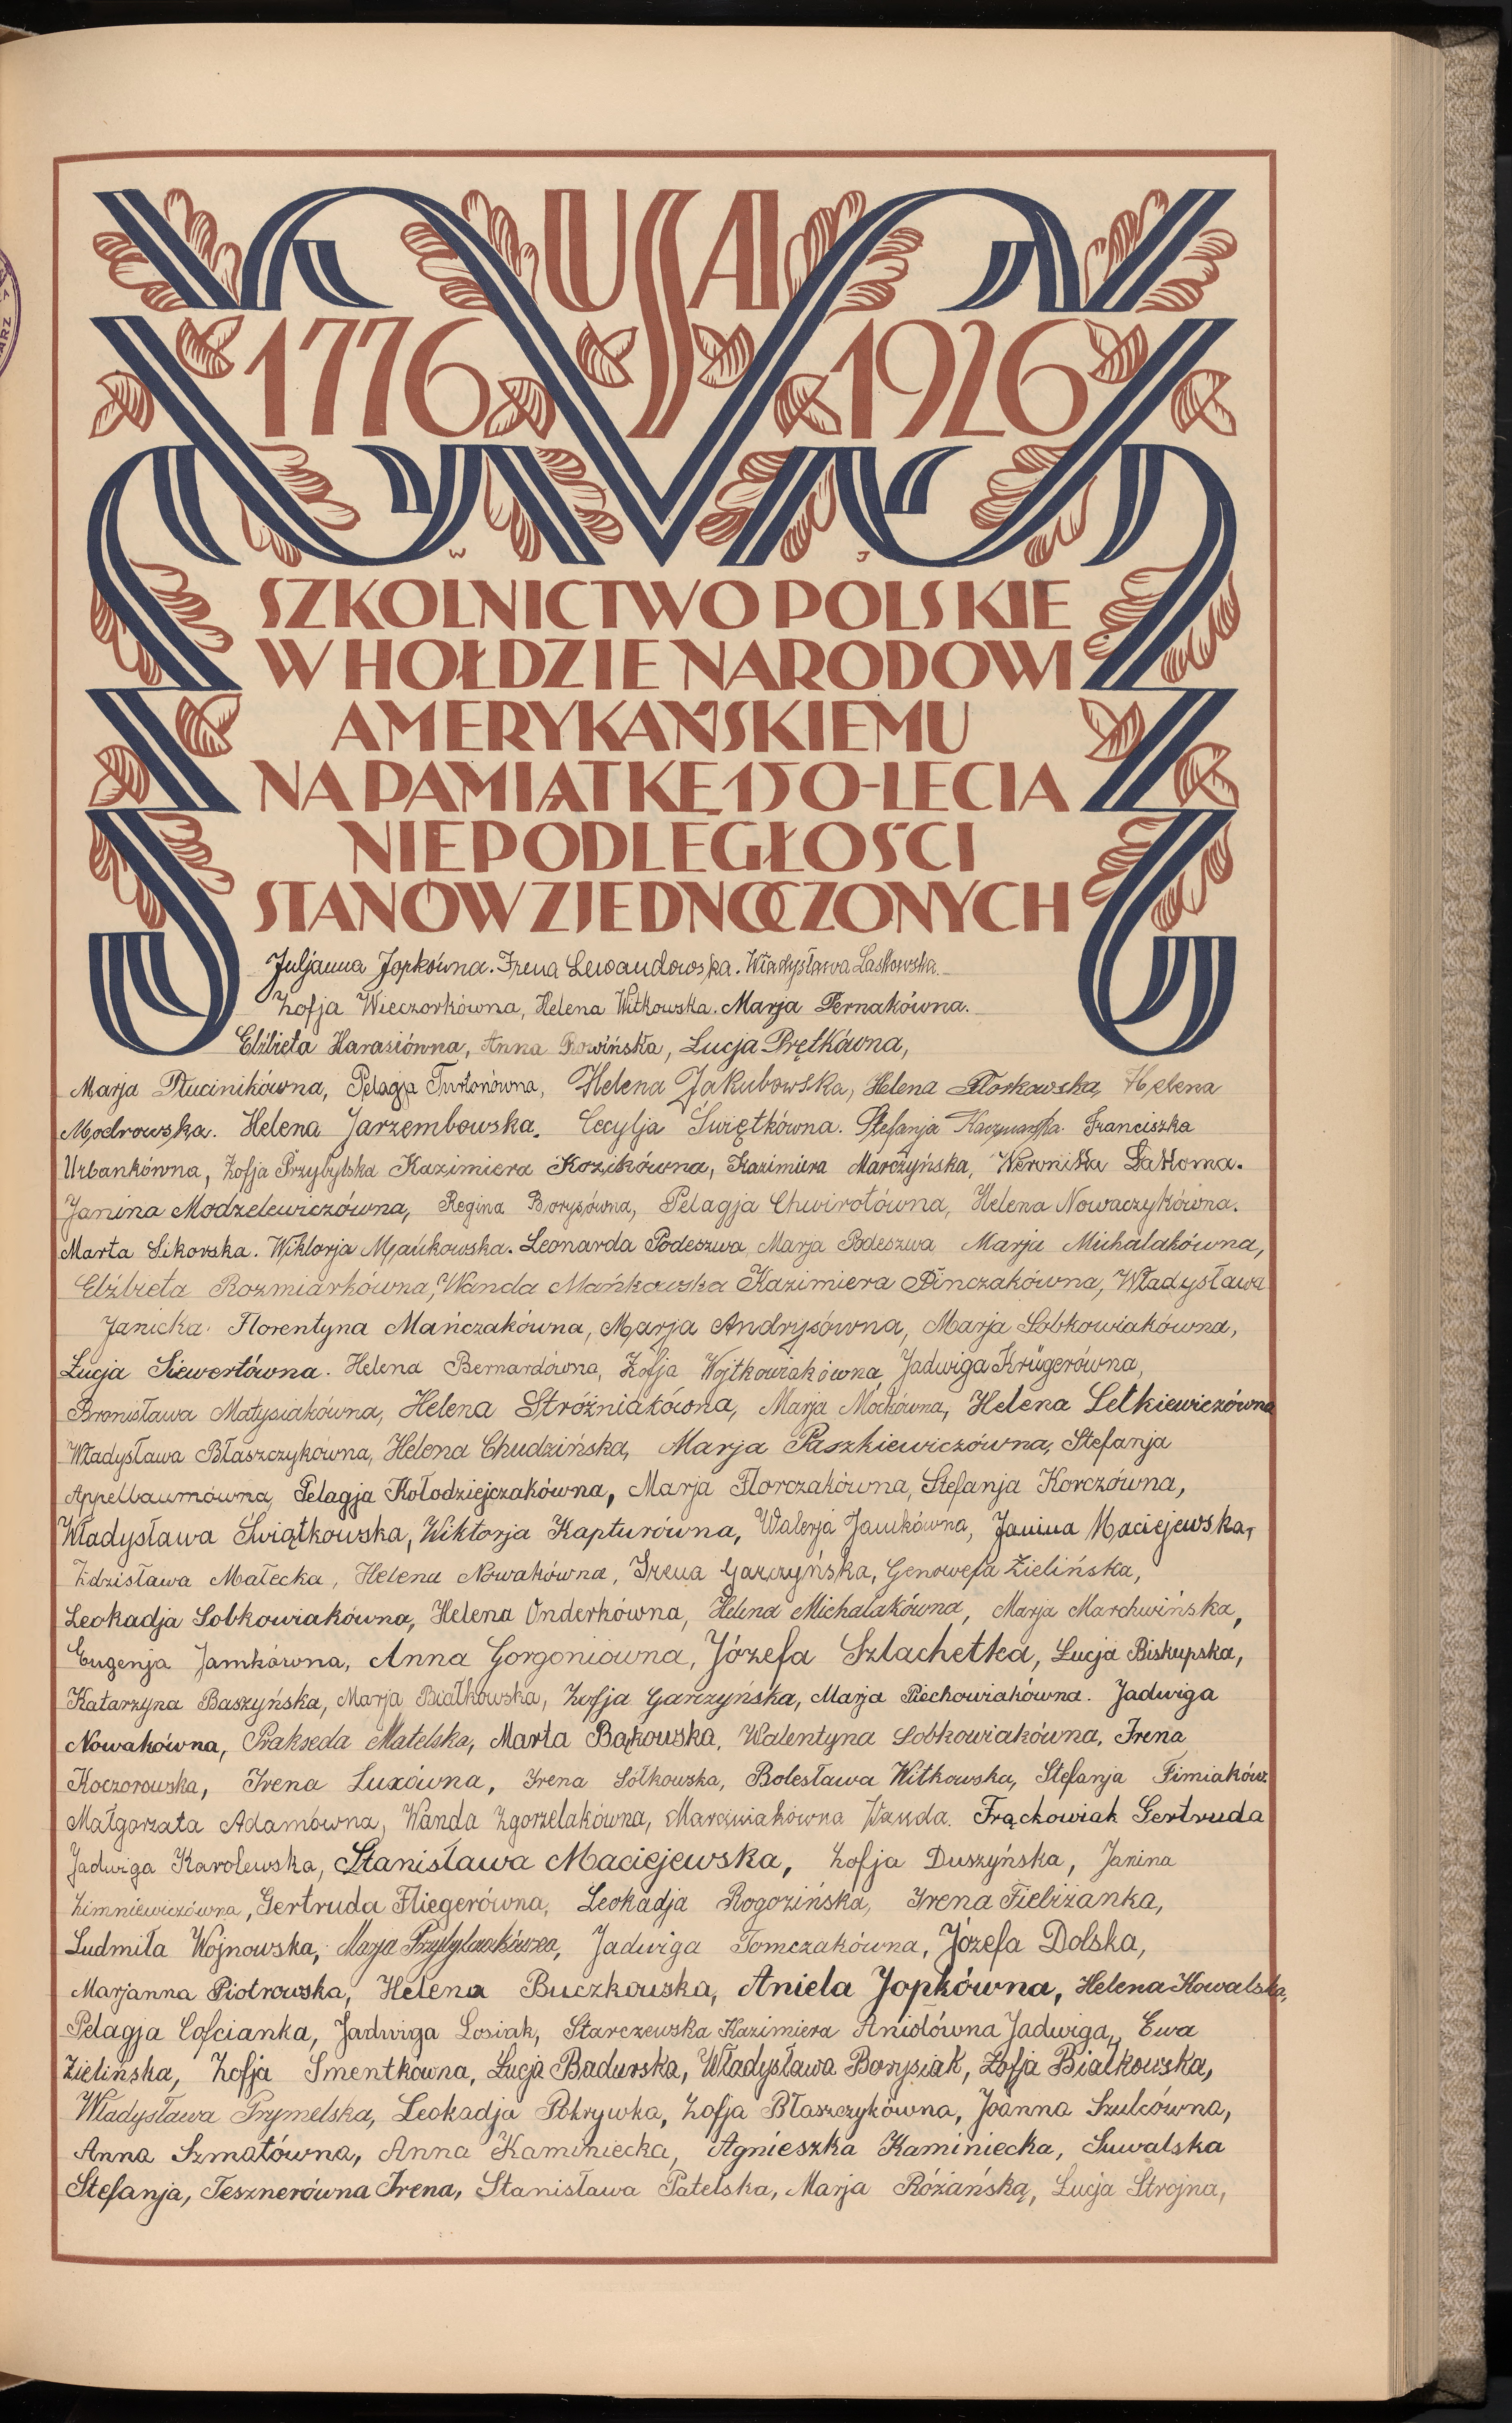 USA
1776 1926
W J
SZKOLNICTWO POLSKIE
W HOŁDZIE NARODOWI
AMERYKAŃSKIEMU
NA PAMIĄTKĘ 150-LECIA
NIEPODLEGŁOŚCI
STANÓW ZJEDNOCZONYCH
Juljanna Jopkówna. Irena Lewandowska. Władysława Laskowska.
Zofja Wieczorkówna, Helena Witkowska. Marja Pernakówna.
Elżbieta Harasiówna, Anna Rowińska, Lucja Prętkówna,
Marja Płucinikówna, Pelagja Turłonówna, Helena Jakubowska, Helena Florkowska, Helena
Modrowska. Helena Jarzembowska. Cecylja Świętkówna. Stefanja Kaczmarska. Franciszka
Urbankówna, Zofja Przybylska Kazimiera Kozikówna, Kazimiera Marczyńska, Weronika Łakoma.
Janina Modzelewiczówna, Regina Borysówna, Pelagja Chwirotówna, Helena Nowaczykówna.
Marta Sikorska. Wiktorja Mańkowska. Leonarda Podeszwa Marja Podeszwa Marja Michalakówna,
Elżbieta Rozmiarkówna, Wanda Mańkowska Kazimiera Pinczakówna, Władysława
Janicka. Florentyna Mańczakówna, Marja Andrysówna, Marja Sobkowiakówna,
Łucja Siewertówna. Helena Bernardówna, Zofja Wojtkowiakówna, Jadwiga Krügerówna,
Bronisława Matysiakówna, Helena Stróżniakówna, Marja Moćkówna, Helena Letkiewiczówna
Władysława Błaszczykówna, Helena Chudzińska, Marja Paszkiewiczówna, Stefanja
Appelbaumówna, Pelagja Kołodziejczakówna, Marja Florczakówna, Stefanja Korczówna,
Władysława Świątkowska, Wiktorja Kapturówna, Walerja Jamkówna, Janina Maciejewska,
Zdzisława Małecka, Helena Nowakówna, Irena Garczyńska, Genowefa Zielińska,
Leokadja Sobkowiakówna, Helena Onderkówna, Helena Michalakówna, Marja Marchwińska,
Eugenja Jamkówna, Anna Gorgoniówna, Józefa Szlachetka, Lucja Biskupska,
Katarzyna Baszyńska, Marja Białkowska, Zofja Garczyńska, Marja Piechowiakówna. Jadwiga
Nowakówna, Prakseda Matelska, Marta Bąkowska, Walentyna Sobkowiakówna, Irena
Koczorowska, Irena Luxówna, Irena Sółkowska, Bolesława Witkowska, Stefanja Fimiaków.
Małgorzata Adamówna, Wanda Zgorzelakówna, Marciniakówna Wanda. Frąckowiak Gertruda
Jadwiga Karolewska, Stanisława Maciejewska, Zofja Duszyńska, Janina
Zimniewiczówna, Gertruda Fliegerówna, Leokadja Rogozińska, Irena Fiebiżanka,
Ludmiła Wojnowska, Marja Przybylakówna, Jadwiga Tomczakówna, Józefa Dolska,
Marjanna Piotrowska, Helena Buczkowska, Aniela Jopkówna, Helena Kowalska,
Pelagja Cofcianka, Jadwiga Losiak, Starczewska Kazimiera Aniołówna Jadwiga, Ewa
Zielińska, Zofja Smentkówna, Łucja Badurska, Władysława Borysiak, Zofja Białkowska,
Władysława Prymelska, Leokadja Pokrywka, Zofja Błaszczykówna, Joanna Szulcówna,
Anna Szmatówna, Anna Kaminiecka, Agnieszka Kaminiecka, Suwalska
Stefanja, Tesznerówna Irena, Stanisława Patelska, Marja Różańska, Lucja Strojna,